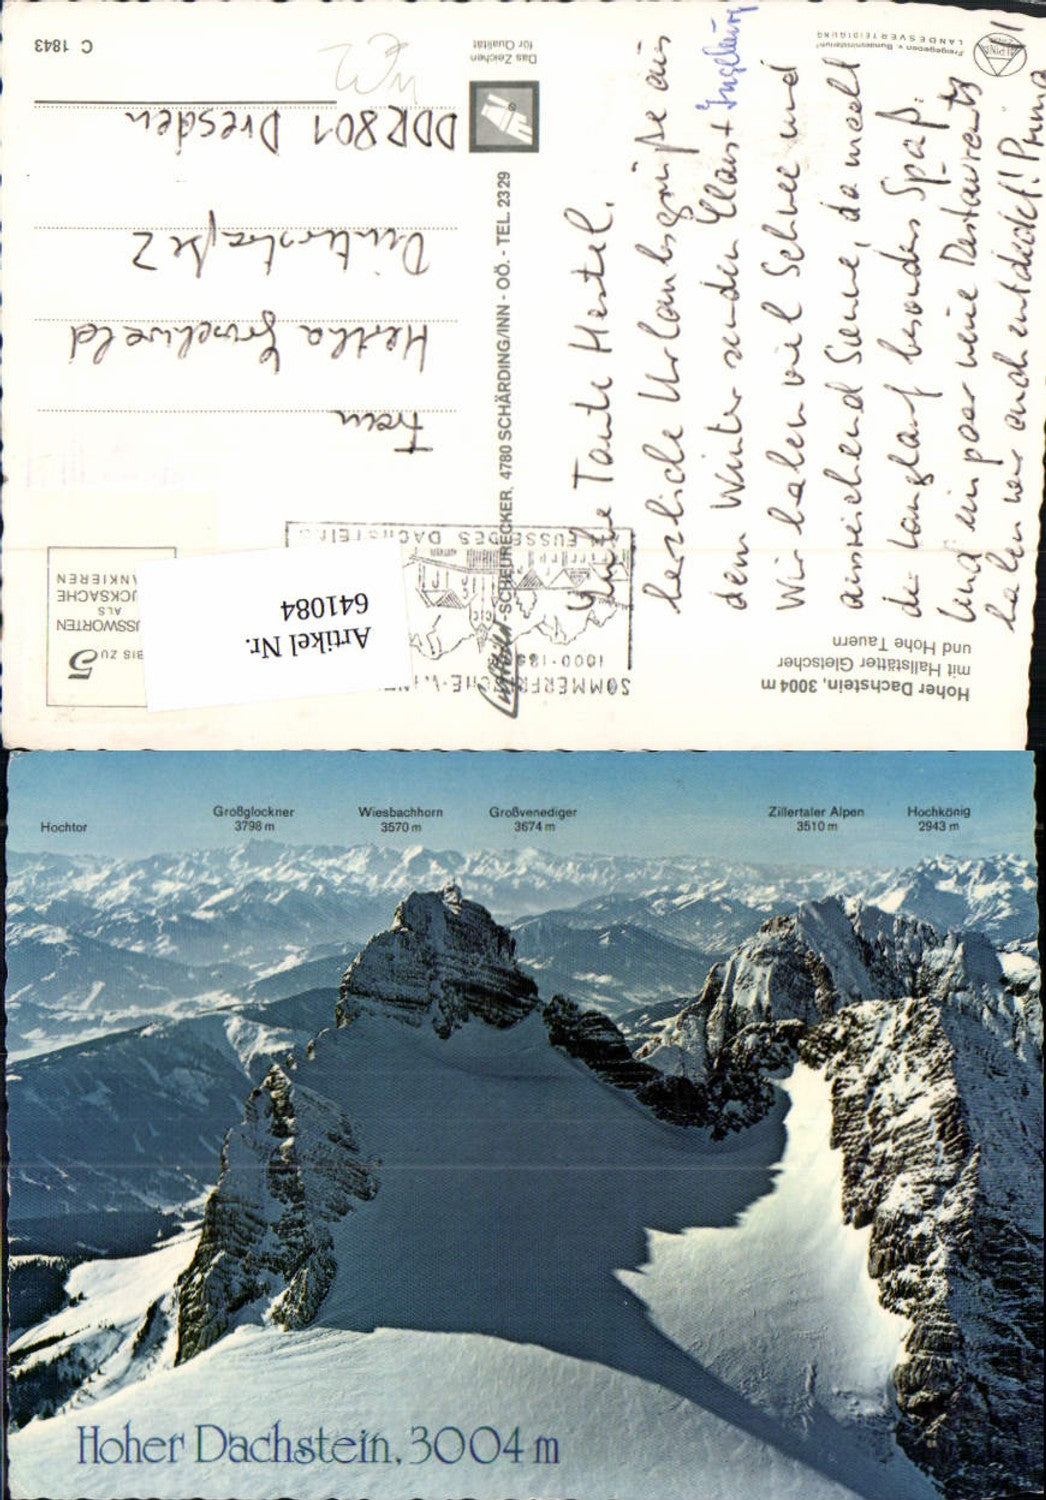 Hoher Dachstein, 3004 m
mit Hallstätter Gletscher
und Hohe Tauern
Liebe Tante Hertel.
herzliche Urlaubsgrüße aus
dem Winter senden Claus + Ingeburg
Wir haben viel Schnee und
ausreichend Sonne, da macht
der Langlauf besonders Spaß.
Und ein paar neue Restaurants
haben wir auch entdeckt! Prima
ALPINE
Freigegeben v. Bundesministerium f.
LANDESVERTEIDIGUNG
SCHEURECKER, 4780 SCHÄRDING/INN - OÖ. - TEL 2329
Das Zeichen
für Qualität
SOMMERFRISCHE
1000-18
FUSSE DES DACHSTEINS
5
BIS ZU
ALS
ANKIEREN
Artikel Nr.
641084
Frau
Hertha
2
DDR 801 Dresden
C 1843
Hochtor
Großglockner
3798 m
Wiesbachhorn
3570 m
Großvenediger
3674 m
Zillertaler Alpen
3510 m
Hochkönig
2943 m
Hoher Dachstein, 3004 m